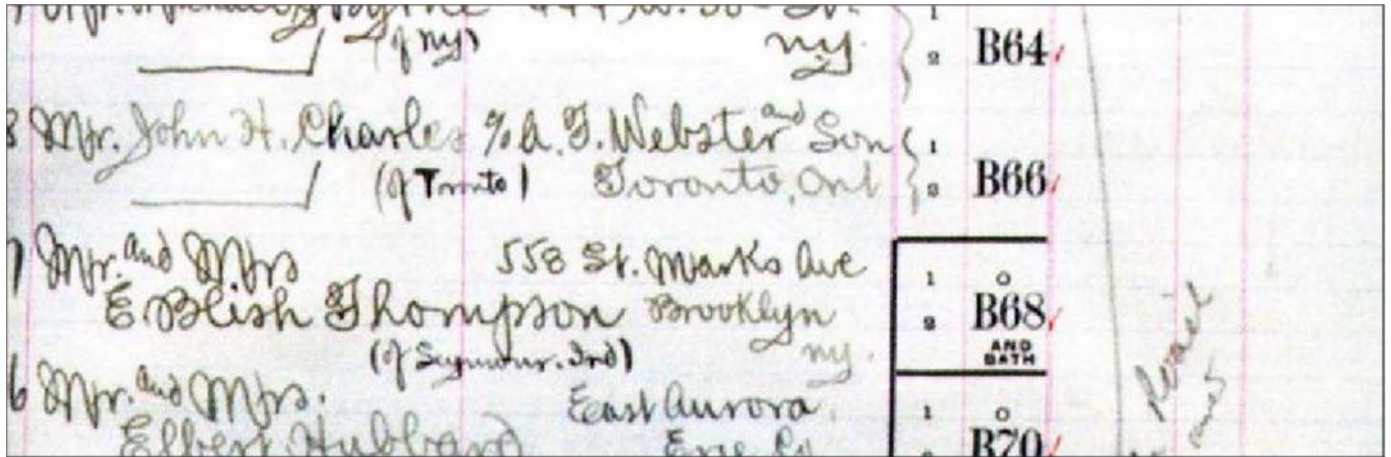 (of ny) ny. 1 2 B64
8 Mr. John H. Charles % A. F. Webster and Son 1
(of Tronto) Toronto, Ont 2 B66
7 Mr. and Mrs 558 St. Marks Ave 1
E Blish Thompson Brooklyn 2 B68
AND
BATH
(of Seymour. Ind) ny.
6 Mr. and Mrs. East Aurora 1
Elbert Hubbard Erie Co B70